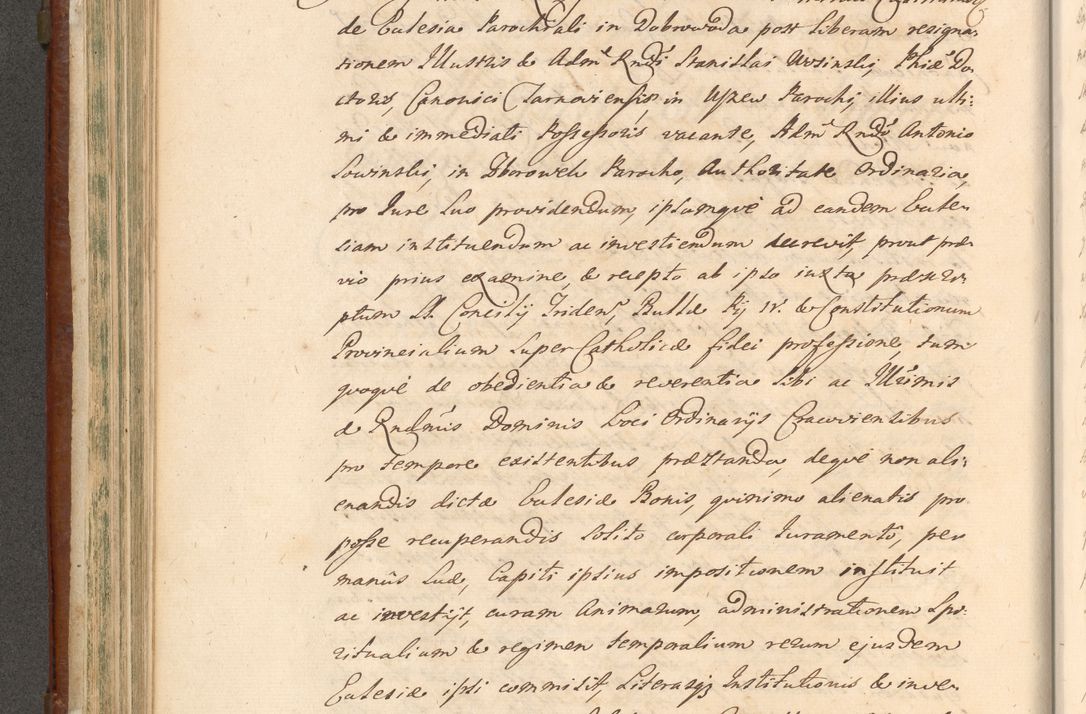 de Ecclesia Parochiali in Dobrowoda post liberam resigna-
tionem Illustris & Admˢ Rndi Stanislai Ursinski, Phiæ Do-
ctoris, Canonici Tarnoviensis in Parochij illius ulti-
mi & immediati Possessoris vacante, Admˢ Rndo Antonio
Lowinski, in Zborowek Parocho, Authoritate Ordinaria,
pro Jure Suo providendum, ipsumqve ad eandem Eccle-
siam instituendum ac investiendum decrevit, prout præ-
vio prius examine, & recepto ab ipso iuxta præscri-
ptum SS. Concilij Triden, Bullæ Pij IV. & Constitutionum
Provincialium super Catholicæ fidei professione, tum
qvoqve de obedientia & reverentia Sibi ac Illrimis
& Rndmis Dominis Loci Ordinarijs Cracoviensibus
pro tempore existentibus præstanda, deqve non ali-
enandis dictæ Ecclesiæ Bonis, qvinimo alienatis pro
posse recuperandis solito corporali Juramento, per
manus Suæ, Capiti ipsius impositionem instituit
ac investijt, curam Animarum, administrationem Spi-
ritualium & regimen temporalium rerum ejusdem
Ecclesiæ ipsi commisit, Literasq Institutionis & inve-